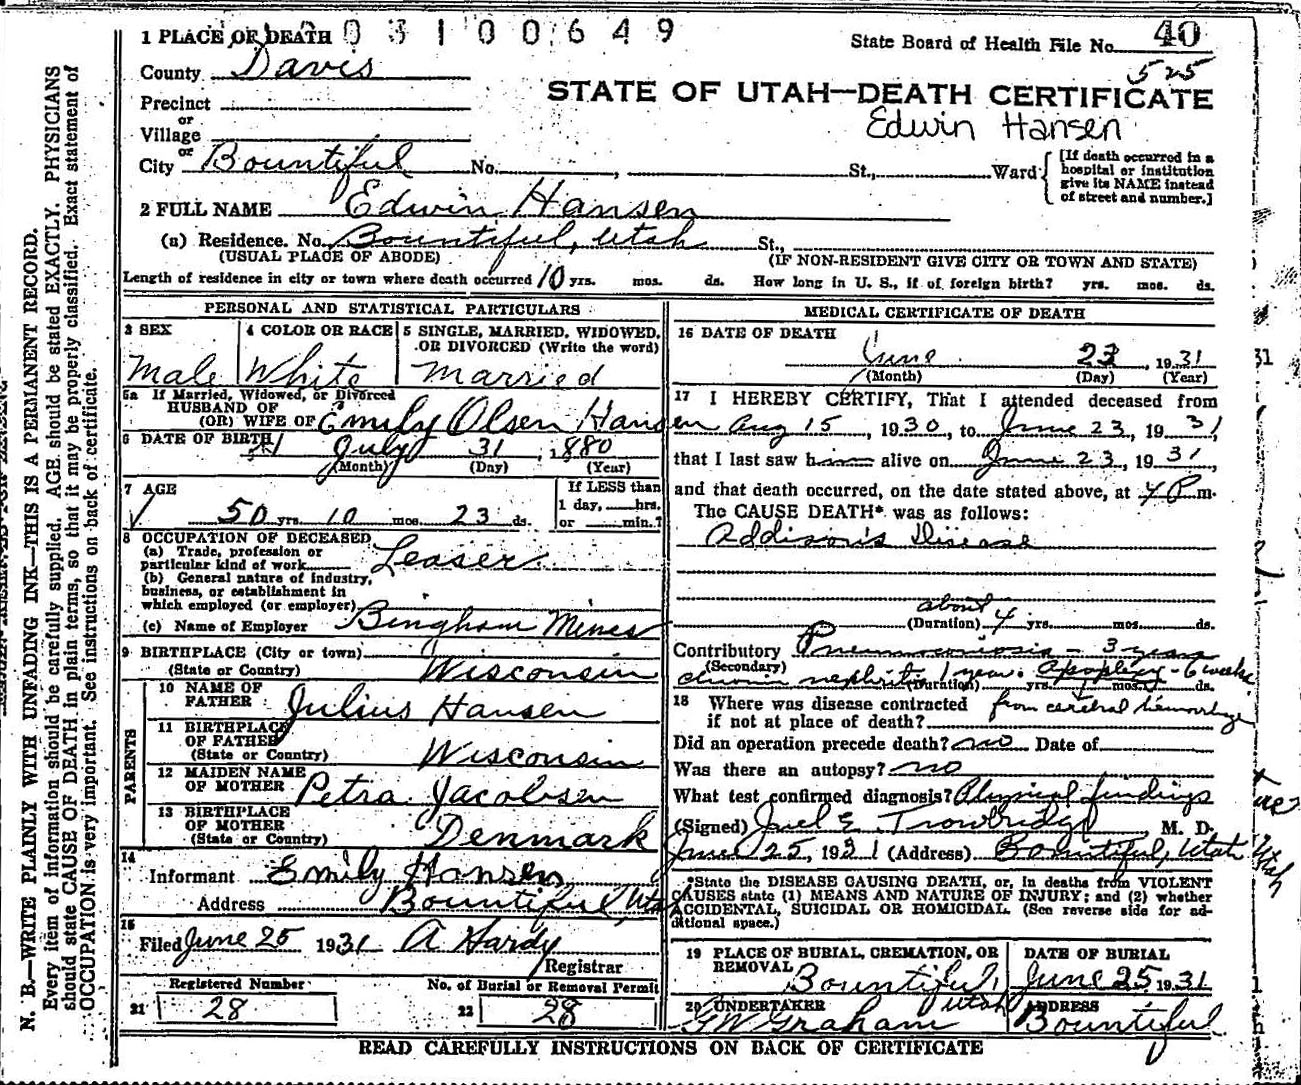 03100649
1 PLACE OF DEATH
State Board of Health File No. 40
County Davis
525
STATE OF UTAH—DEATH CERTIFICATE
Precinct
Edwin Hansen
or
Village
or
City Bountiful No. , St., Ward
[If death occurred in a hospital or institution give its NAME instead of street and number.]
2 FULL NAME Edwin Hansen
(a) Residence. No. Bountiful, Utah St.,
(USUAL PLACE OF ABODE) (IF NON-RESIDENT GIVE CITY OR TOWN AND STATE)
Length of residence in city or town where death occurred 10 yrs. mos. ds. How long in U. S., if of foreign birth? yrs. mos. ds.
PERSONAL AND STATISTICAL PARTICULARS
3 SEX 4 COLOR OR RACE 5 SINGLE, MARRIED, WIDOWED, OR DIVORCED (Write the word)
Male White Married
5a If Married, Widowed, or Divorced
HUSBAND OF
(OR) WIFE OF Emily Olsen Hansen
6 DATE OF BIRTH July 31, 1880
(Month) (Day) (Year)
7 AGE
If LESS than
1 day, hrs.
or min.?
50 yrs. 10 mos. 23 ds.
8 OCCUPATION OF DECEASED
(a) Trade, profession or
particular kind of work Leaser
(b) General nature of industry,
business, or establishment in
which employed (or employer)
(c) Name of Employer Bingham Mines
9 BIRTHPLACE (City or town)
(State or Country) Wisconsin
PARENTS
10 NAME OF
FATHER Julius Hansen
11 BIRTHPLACE
OF FATHER
(State or Country) Wisconsin
12 MAIDEN NAME
OF MOTHER Petra Jacobsen
13 BIRTHPLACE
OF MOTHER
(State or Country) Denmark
14
Informant Emily Hansen
Address Bountiful, Utah
15
Filed June 25 1931 A Hardy
Registrar
Registered Number No. of Burial or Removal Permit
21 28 22 28
MEDICAL CERTIFICATE OF DEATH
16 DATE OF DEATH
June 23, 1931
(Month) (Day) (Year)
17 I HEREBY CERTIFY, That I attended deceased from
Aug 15, 1930, to June 23, 1931,
that I last saw him alive on June 23, 1931,
and that death occurred, on the date stated above, at 4 P m.
The CAUSE DEATH* was as follows:
Addison's Disease
about
(Duration) 4 yrs. mos. ds.
Contributory Pneumoconiosis - 3 years
(Secondary)
chronic nephritis 1 year. apoplexy - 6 weeks
(Duration) yrs. mos. ds.
18 Where was disease contracted from cerebral hemorrhage
if not at place of death?
Did an operation precede death? no Date of
Was there an autopsy? no
What test confirmed diagnosis? Physical findings
(Signed) Joel E. Trowbridge M. D.
June 25, 1931 (Address) Bountiful, Utah
*State the DISEASE CAUSING DEATH, or, in deaths from VIOLENT
CAUSES state (1) MEANS AND NATURE OF INJURY; and (2) whether
ACCIDENTAL, SUICIDAL OR HOMICIDAL. (See reverse side for ad-
ditional space.)
19 PLACE OF BURIAL, CREMATION, OR
REMOVAL Bountiful, Utah
DATE OF BURIAL
June 25 1931
20 UNDERTAKER
GW Graham
ADDRESS
Bountiful
READ CAREFULLY INSTRUCTIONS ON BACK OF CERTIFICATE
N. B.—WRITE PLAINLY WITH UNFADING INK—THIS IS A PERMANENT RECORD.
Every item of information should be carefully supplied. AGE should be stated EXACTLY. PHYSICIANS
should state CAUSE OF DEATH in plain terms, so that it may be properly classified. Exact statement of
OCCUPATION is very important. See instructions on back of certificate.
31
Utah